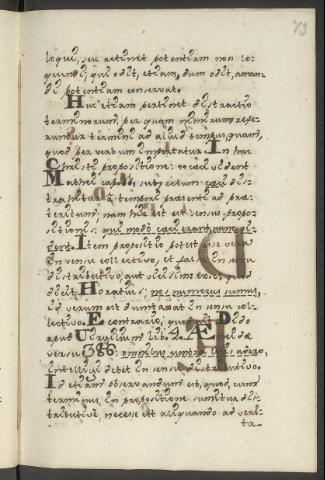 73
loqui, seu retinet potentiam non lo-
quendi; qui odit, etiam, dum odit, aman-
di potentiam conservat.
Huc etiam pertinet distractio
terminorum, per quam nimirum refe-
runtur termini ad aliud tempus, quam,
quod per verbum importatur. In hac
Christi propositione: caeci vident
Matthei capite, subiectum caeci dis-
trahitur a tempore praesenti ad prae-
teritum, nam hic est sensus propo-
sitionis: qui modo caeci erant, nunc vi-
dent. Item propositio potest esse vera
in sensu collectivo, et falsa in sen-
su distributivo, aut vicissim ex: quod
dicit Horatius; nos numerus sumus,
id verum est duntaxat in sensu col-
lectivo. E contrario, quod Dido
apud Virgilium libro Æneidae
versu 386: omnibus umbra locis adero,
intelligi debet in sensu distributivo.
Id etiam observandum est, quod, cum
terminus in propositione sumitur dis-
tributive, necesse est aliquando ad veri-
ta-